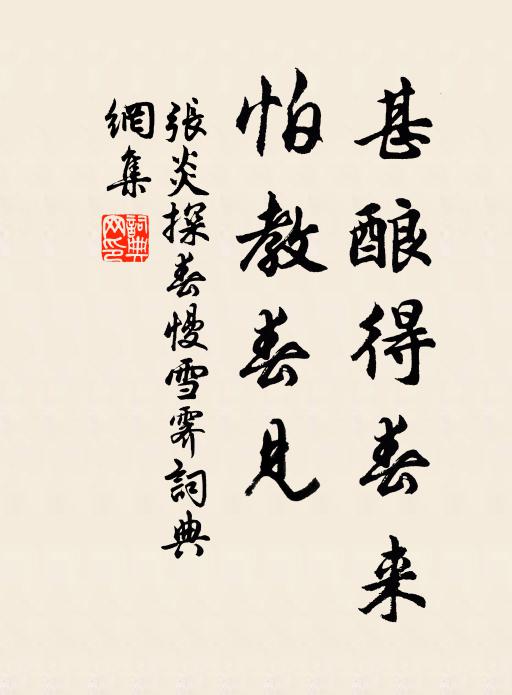 甚酿得春来
怕教春见
張炎探春慢雪霽詞典
網集
詞典網印